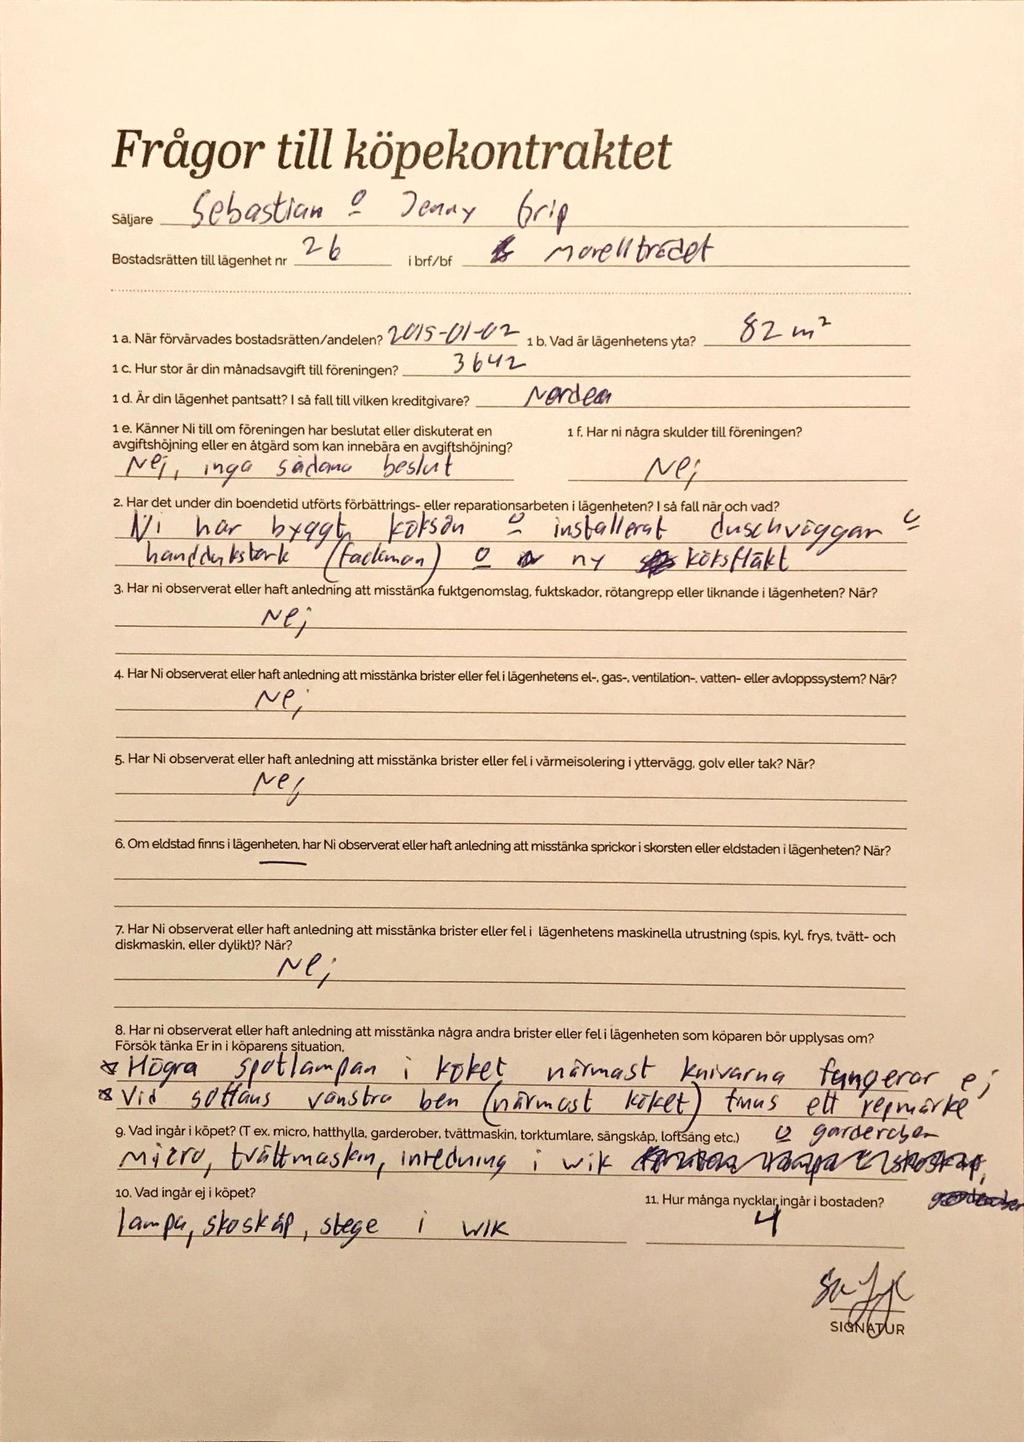 Frågor till köpekontraktet
Säljare Sebastian o Jenny Grip
Bostadsrätten till lägenhet nr 26 i brf/bf Morellträdet
1 a. När förvärvades bostadsrätten/andelen? 2015-01-02 1 b. Vad är lägenhetens yta? 82 m²
1 c. Hur stor är din månadsavgift till föreningen? 3642
1 d. Är din lägenhet pantsatt? I så fall till vilken kreditgivare? Nordea
1 e. Känner Ni till om föreningen har beslutat eller diskuterat en
avgiftshöjning eller en åtgärd som kan innebära en avgiftshöjning?
Nej, inga sådana beslut
1 f. Har ni några skulder till föreningen?
Nej
2. Har det under din boendetid utförts förbättrings- eller reparationsarbeten i lägenheten? I så fall när och vad?
Vi har byggt köksön o installerat duschväggar o
handdukstork (fackman) o ny köksfläkt
3. Har ni observerat eller haft anledning att misstänka fuktgenomslag, fuktskador, rötangrepp eller liknande i lägenheten? När?
Nej
4. Har Ni observerat eller haft anledning att misstänka brister eller fel i lägenhetens el-, gas-, ventilation-, vatten- eller avloppssystem? När?
Nej
5. Har Ni observerat eller haft anledning att misstänka brister eller fel i värmeisolering i yttervägg, golv eller tak? När?
Nej
6. Om eldstad finns i lägenheten, har Ni observerat eller haft anledning att misstänka sprickor i skorsten eller eldstaden i lägenheten? När?
7. Har Ni observerat eller haft anledning att misstänka brister eller fel i lägenhetens maskinella utrustning (spis, kyl, frys, tvätt- och
diskmaskin, eller dylikt)? När?
Nej
8. Har ni observerat eller haft anledning att misstänka några andra brister eller fel i lägenheten som köparen bör upplysas om?
Försök tänka Er in i köparens situation.
Högra spotlampan i köket närmast knivarna fungerar ej
Vid soffans vänstra ben (närmast köket) finns ett repmärke
9. Vad ingår i köpet? (T ex. micro, hatthylla, garderober, tvättmaskin, torktumlare, sängskåp, loftsäng etc.) o garderober
Micro, tvättmaskin, inredning i wik
10. Vad ingår ej i köpet?
lampa, skoskåp, stege i wik
11. Hur många nycklar ingår i bostaden?
4
SIGNATUR